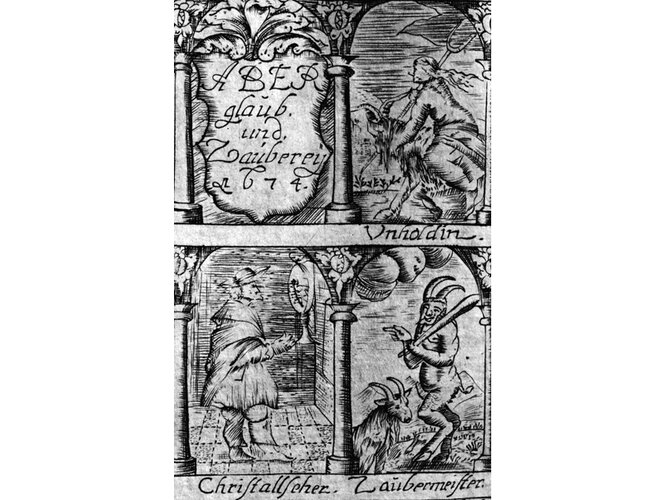 ABER
glaub.
und.
Zauberey
1674.
Vnholdin.
Christallseher.
Zaubermeister